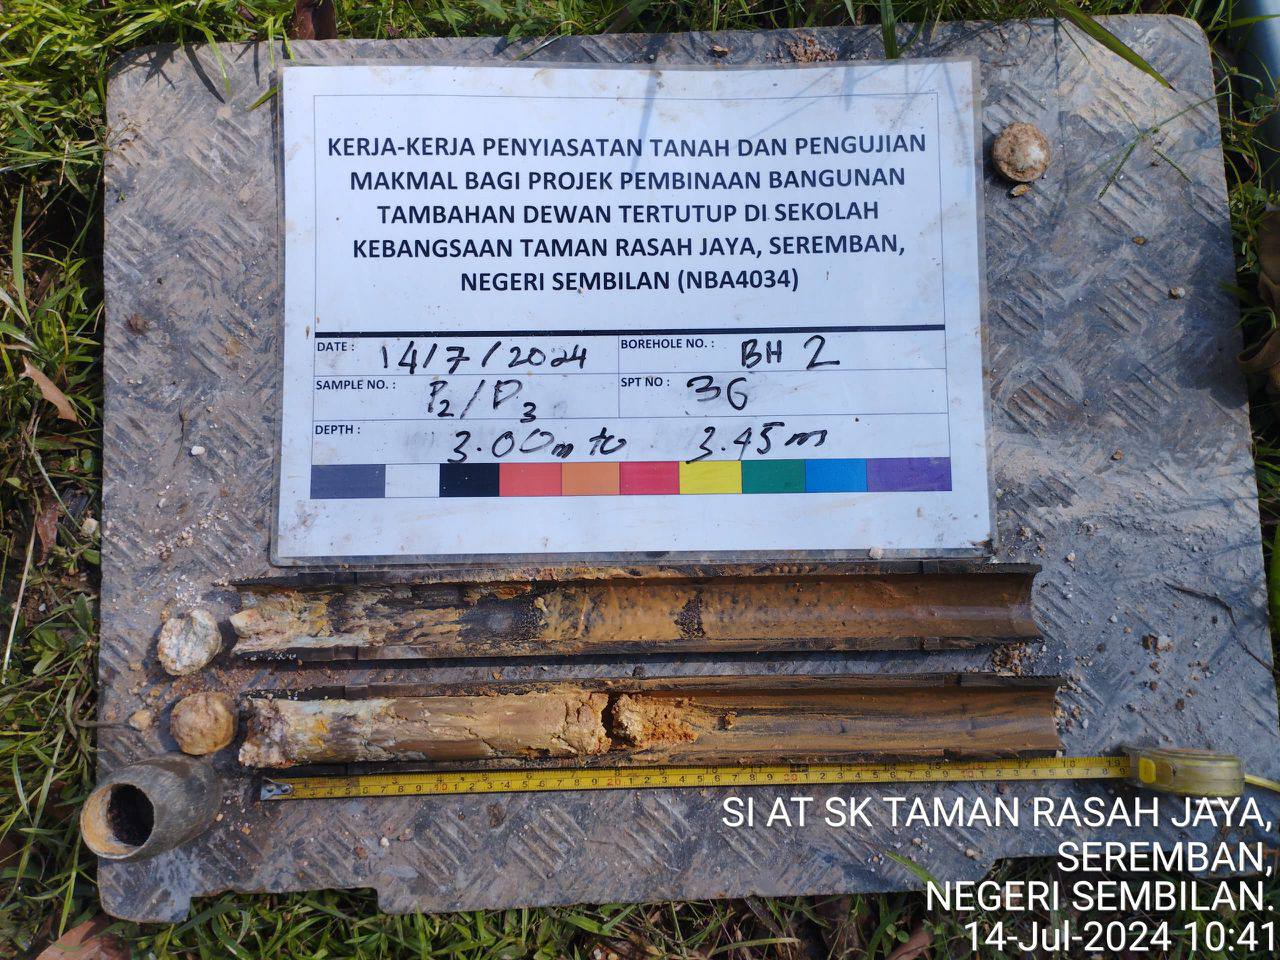 KERJA-KERJA PENYIASATAN TANAH DAN PENGUJIAN
MAKMAL BAGI PROJEK PEMBINAAN BANGUNAN
TAMBAHAN DEWAN TERTUTUP DI SEKOLAH
KEBANGSAAN TAMAN RASAH JAYA, SEREMBAN,
NEGERI SEMBILAN (NBA4034)
DATE : 14/7/2024 BOREHOLE NO. : BH 2
SAMPLE NO. : P2/D3 SPT NO : 36
DEPTH : 3.00m to 3.45m
SI AT SK TAMAN RASAH JAYA,
SEREMBAN,
NEGERI SEMBILAN.
14-Jul-2024 10:41